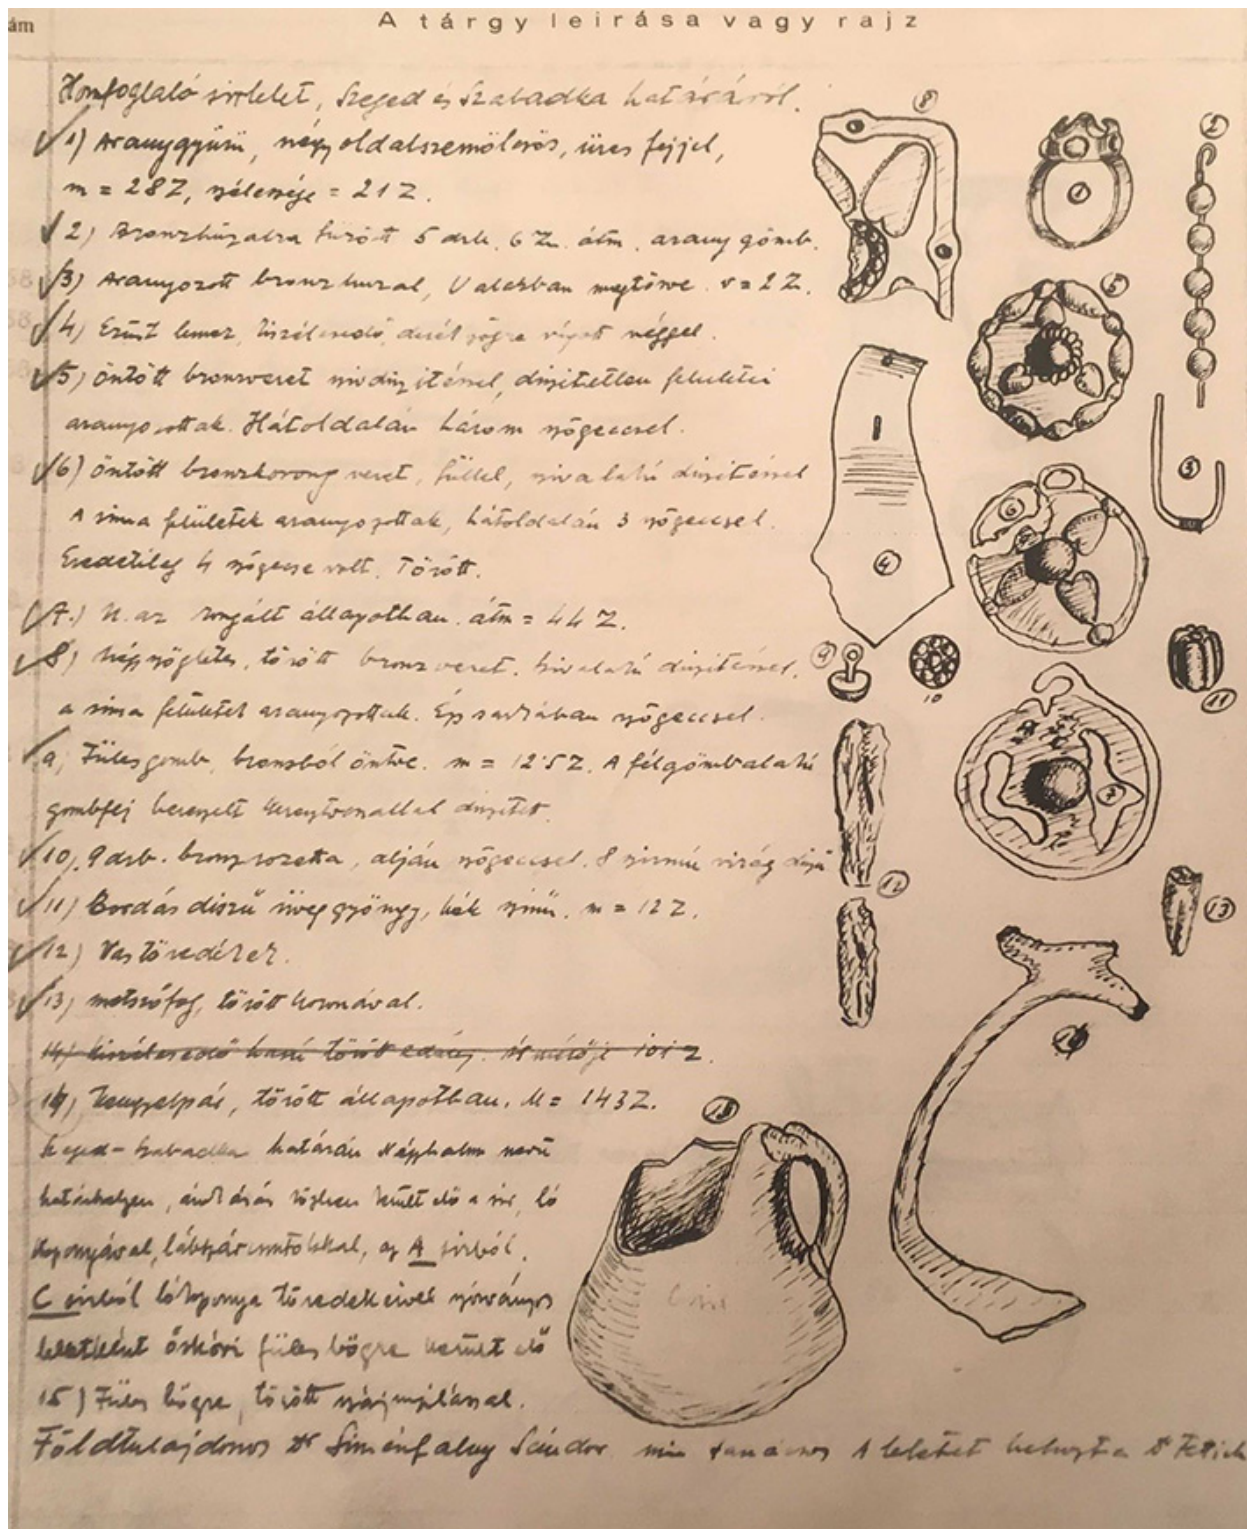 ám
A tárgy leírása vagy rajz
Homfoglaló sírlelet, Szeged és Szabadka határáról.
1) Aranygyűrű, négy oldalszemölcsös, üres fejjel,
m = 28 Z, szélessége = 21 Z.
2) Bronzhúzalra fűzött 5 drb. 6 Z. átm. arany gömb.
3) Aranyozott bronz huzal, U alakban megtörve. v = 2 Z.
4) Ezüst lemez, kiszélesedő, derékszögre vágott véggel.
5) öntött bronzveret díszítetlen felületei
aranyozottak. Hátoldalán három szögeccsel.
6) öntött bronzkorong veret, füllel, szívalakú díszítéssel
A sima felületek aranyozottak, hátoldalán 3 szögeccsel.
Eredetileg 4 szögecse volt. Törött.
7.) U. az rongált állapotban. átm = 44 Z.
8) Négyszögletes, törött bronzveret. szívalakú díszítéssel,
a sima felületek aranyozottak. Ép sarkában szögeccsel.
9) Füles gomb, bronzból öntve. m = 12·5 Z. A félgömbalakú
gombfej bevésett díszített.
10). 9 drb. bronzrozetta, alján szögeccsel. 8 szirmú virág
11) Bordás díszű üveggyöngy, kék színű. m = 12 Z.
12) Vastöredékek.
13) metszőfog, törött koronával.
14) Kiszélesedő hasú törött edény. Átmérője 101 Z.
14) Kengyelpár, törött állapotban. M = 143 Z.
Szeged - Szabadka határán Négyhalom nevű
határhelyen, került elő a sír, ló
koponyával, lábszárcsontokkal, az A sírból.
C sírból lókoponya töredékeivel szórványos
leletként őskori füles bögre került elő
15) Füles bögre, törött szájnyílással.
Földtulajdonos Dr Siménfalvy Sándor min tanácsos A leletet behozta Dr Fettich
8
1
2
5
3
4
6
9
10
11
7
12
13
14
15
C sír